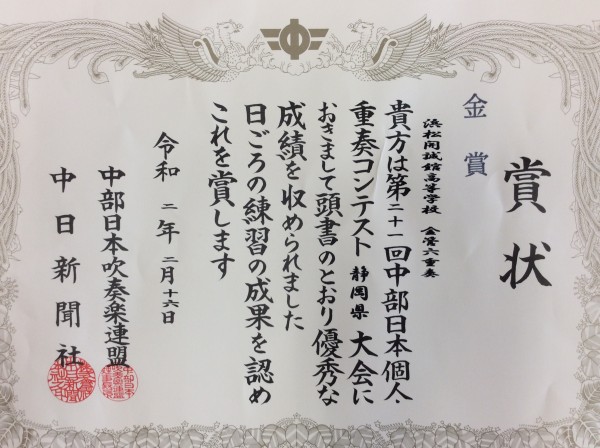 賞状
金賞
浜松開誠館高等学校 金管六重奏
貴方は第二十一回中部日本個人・
重奏コンテスト静岡県大会に
おきまして頭書のとおり優秀な
成績を収められました
日ごろの練習の成果を認め
これを賞します
令和二年二月十六日
中部日本吹奏楽連盟
中日新聞社